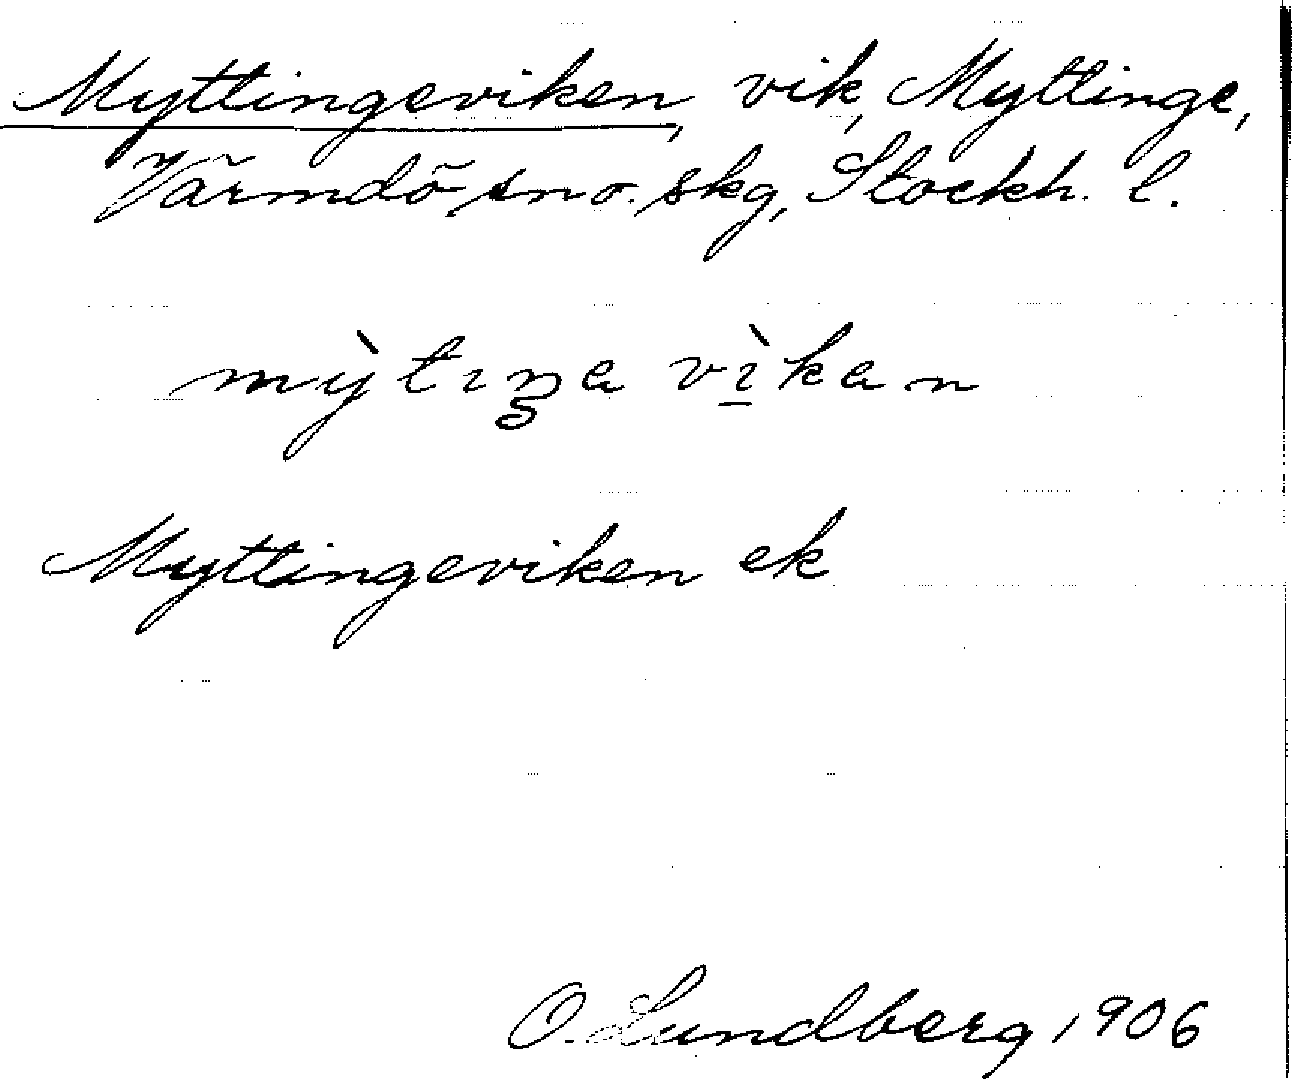 Myttingeviken, vik, Myttinge,
Värmdö sno. skg, Stockh. l.
mỳtıŋa vı̠̀kan
Myttingeviken ek
O. Lundberg 1906